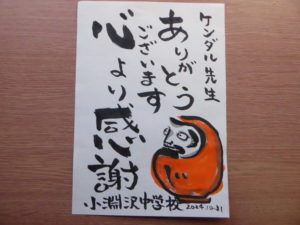 ケンダル先生
ありがとう
ございます
心より感謝
小淵沢中学校
2004.10.21